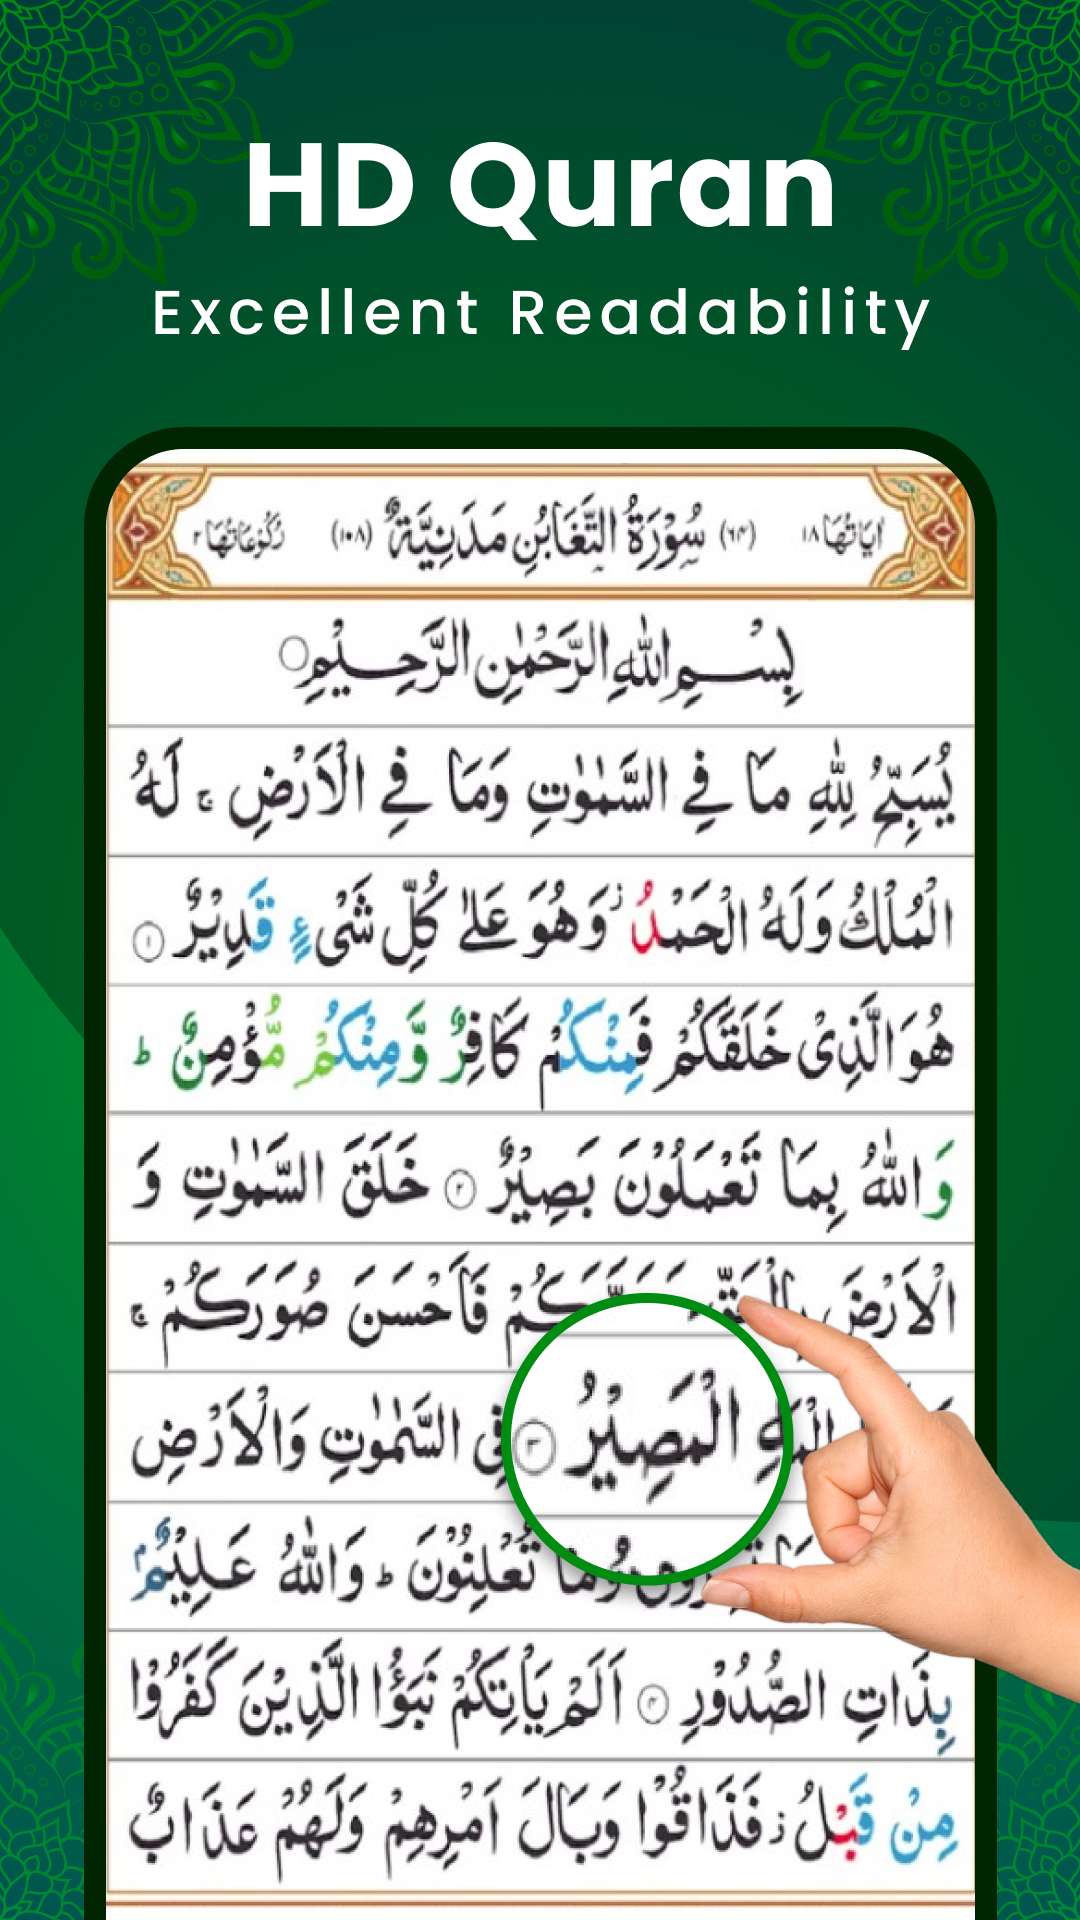 HD Quran
Excellent Readability
اٰيَاتُهَا ١٨ (٦٤) سُوْرَةُ التَّغَابُنِ مَدَنِيَّةٌ (١٠٨) رُكُوْعَاتُهَا ٢
بِسْمِ اللّٰهِ الرَّحْمٰنِ الرَّحِيْمِ
يُسَبِّحُ لِلّٰهِ مَا فِي السَّمٰوٰتِ وَمَا فِي الْاَرْضِ ۚ لَهُ
الْمُلْكُ وَلَهُ الْحَمْدُ ؗ وَهُوَ عَلٰى كُلِّ شَىْءٍ قَدِيْرٌ ١
هُوَ الَّذِىْ خَلَقَكُمْ فَمِنْكُمْ كَافِرٌ وَّمِنْكُمْ مُّؤْمِنٌ ؕ
وَاللّٰهُ بِمَا تَعْمَلُوْنَ بَصِيْرٌ ٢ خَلَقَ السَّمٰوٰتِ وَ
الْاَرْضَ بِالْحَقِّ كُمْ فَاَحْسَنَ صُوَرَكُمْ ۚ
الْمَصِيْرُ ٣ فِى السَّمٰوٰتِ وَالْاَرْضِ
وَمَا تُعْلِنُوْنَ ؕ وَاللّٰهُ عَلِيْمٌۢ
بِذَاتِ الصُّدُوْرِ ٤ اَلَمْ يَاْتِكُمْ نَبَؤُا الَّذِيْنَ كَفَرُوْا
مِنْ قَبْلُ ؗ فَذَاقُوْا وَبَالَ اَمْرِهِمْ وَلَهُمْ عَذَابٌ